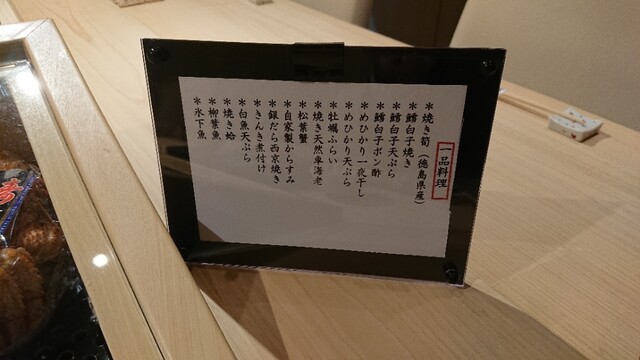 一品料理
＊焼き筍（徳島県産）
＊鱈白子焼き
＊鱈白子天ぷら
＊鱈白子ポン酢
＊めひかり一夜干し
＊めひかり天ぷら
＊牡蠣ふらい
＊焼き天然車海老
＊松葉蟹
＊自家製からすみ
＊銀だら西京焼き
＊きんき煮付け
＊白魚天ぷら
＊焼き蛤
＊柳葉魚
＊氷下魚